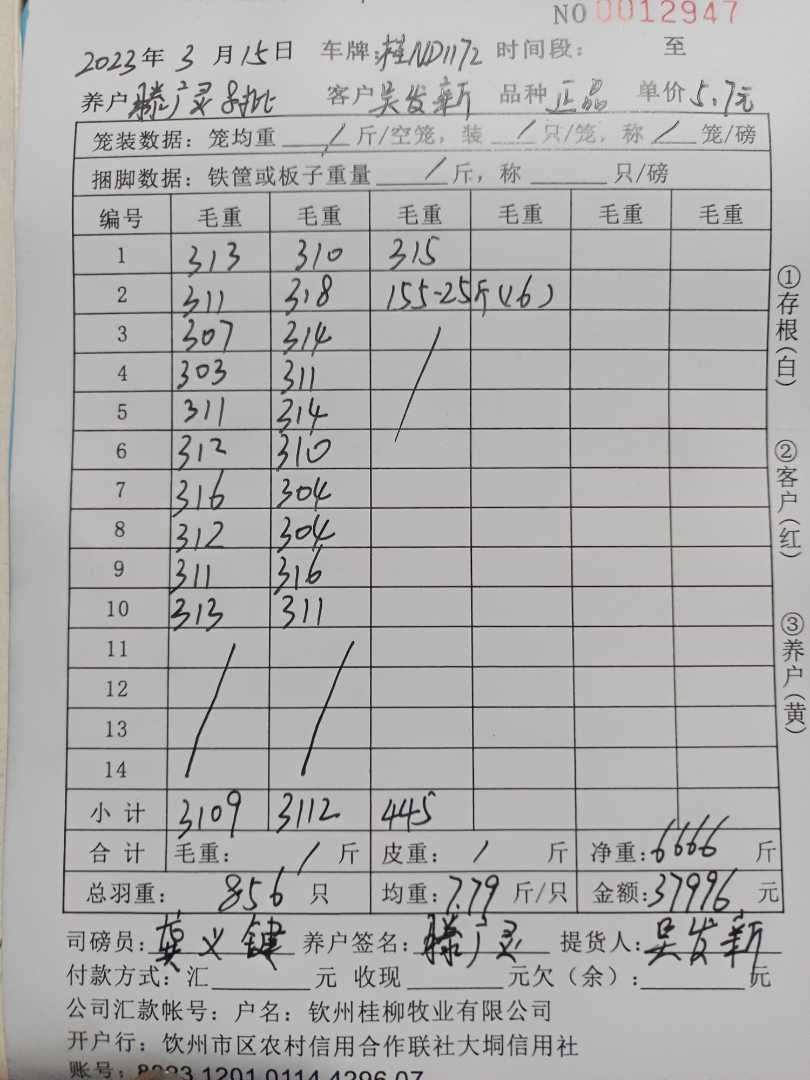 NO 0012947
2023年 3 月 15日 车牌:桂ND1172 时间段: 至
养户 滕广灵 客户 吴发新 品种 正品 单价 5.7元
笼装数据: 笼均重 / 斤/空笼, 装 / 只/笼, 称 / 笼/磅
捆脚数据: 铁筐或板子重量 / 斤, 称 只/磅
编号 毛重 毛重 毛重 毛重 毛重 毛重
1 313 310 315
2 311 318 155-25斤(16)
3 307 314 /
4 303 311
5 311 314
6 312 310
7 316 304
8 312 304
9 311 316
10 313 311
11 / /
12
13
14
小 计 3109 3112 445
合 计 毛重: / 斤 皮重: / 斤 净重:6666 斤
总羽重: 856 只 均重:7.79 斤/只 金额:37996 元
司磅员: 莫义键 养户签名: 滕广灵 提货人: 吴发新
付款方式: 汇 元 收现 元欠(余): 元
公司汇款帐号: 户名: 钦州桂柳牧业有限公司
开户行: 饮州市区农村信用合作联社大垌信用社
账号: 8223 1201 0114 4296 07
①存根(白)
②客户(红)
③养户(黄)